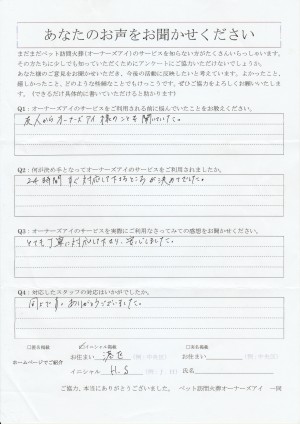 あなたのお声をお聞かせください
まだまだペット訪問火葬(オーナーズアイ)のサービスを知らない方がたくさんいらっしゃいます。
その方たちに少しでも知っていただくためにアンケートにご協力いただけないでしょうか。
あなた様のご意見をお聞かせいただき、今後の活動に反映したいと考えています。よかったこと、
嬉しかったこと、どのような些細なことでもけっこうです。ぜひご協力をよろしくお願いいたします。
(できるだけ具体的に書いていただけると助かります)
Q1：オーナーズアイのサービスをご利用される前に悩んでいたことをお教えください。
友人からオーナーズアイ様のことを聞いていた。
Q2：何が決め手となってオーナーズアイのサービスをご利用されましたか。
24時間 すぐ対応して下さるところが決めてでした。
Q3：オーナーズアイのサービスを実際にご利用なさってみての感想をお聞かせください。
とても丁寧に対応して下さり、安心しました。
Q4：対応したスタッフの対応はいかがでしたか。
ありがとうございました。
□匿名掲載 イニシャル掲載 □実名掲載
ホームページでご紹介
お住まい 港区 お住まい
イニシャル H.S 氏名
ご協力、本当にありがとうございました。 ペット訪問火葬オーナーズアイ 一同